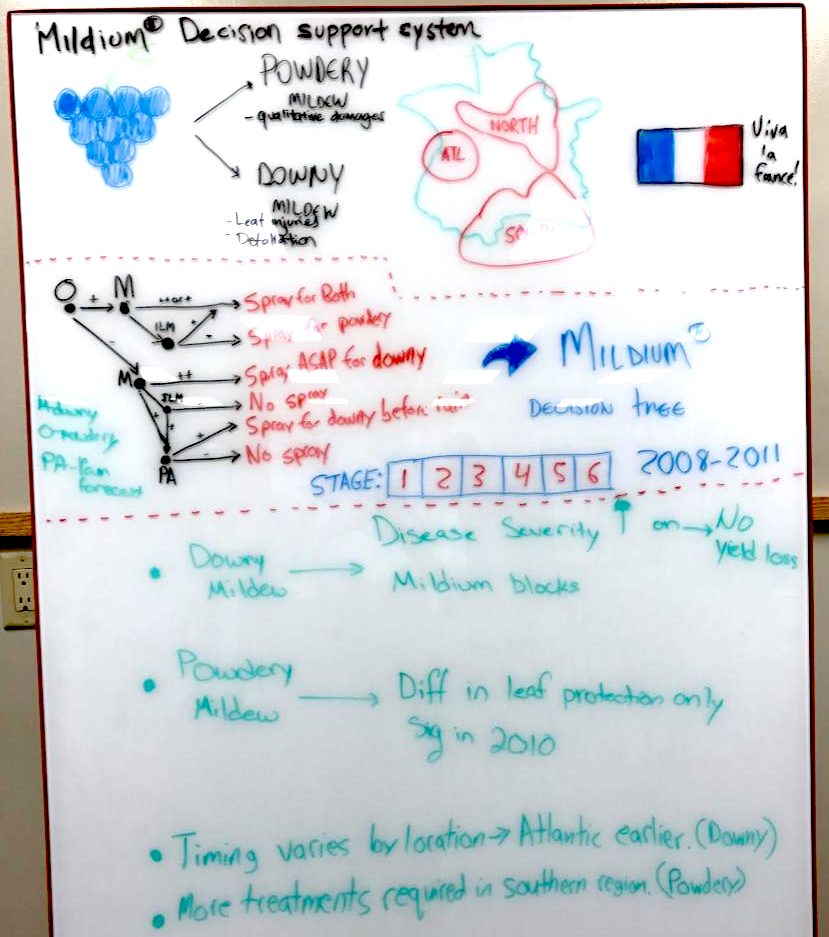 Mildium® Decision support system
POWDERY
MILDEW
- qualitative damages
DOWNY
MILDEW
- Leaf injuries
- Defoliation
NORTH
ATL
SOUTH
Viva
la
france!
O + M ++or+ Spray for Both
ILM + - Spray for powdery
- M ++ Spray ASAP for downy
ILM - No spray
+ + + Spray for downy before rain
PA - No spray
M-downy
O-powdery
PA-Rain
forecast
MILDIUM®
DECISION tree
STAGE: 1 2 3 4 5 6
2008-2011
• Downy
Mildew
Disease Severity ↑ on → No
yield loss
Mildium blocks
• Powdery
Mildew
Diff in leaf protection only
sig in 2010
• Timing varies by location → Atlantic earlier. (Downy)
• More treatments required in southern region. (Powdery)